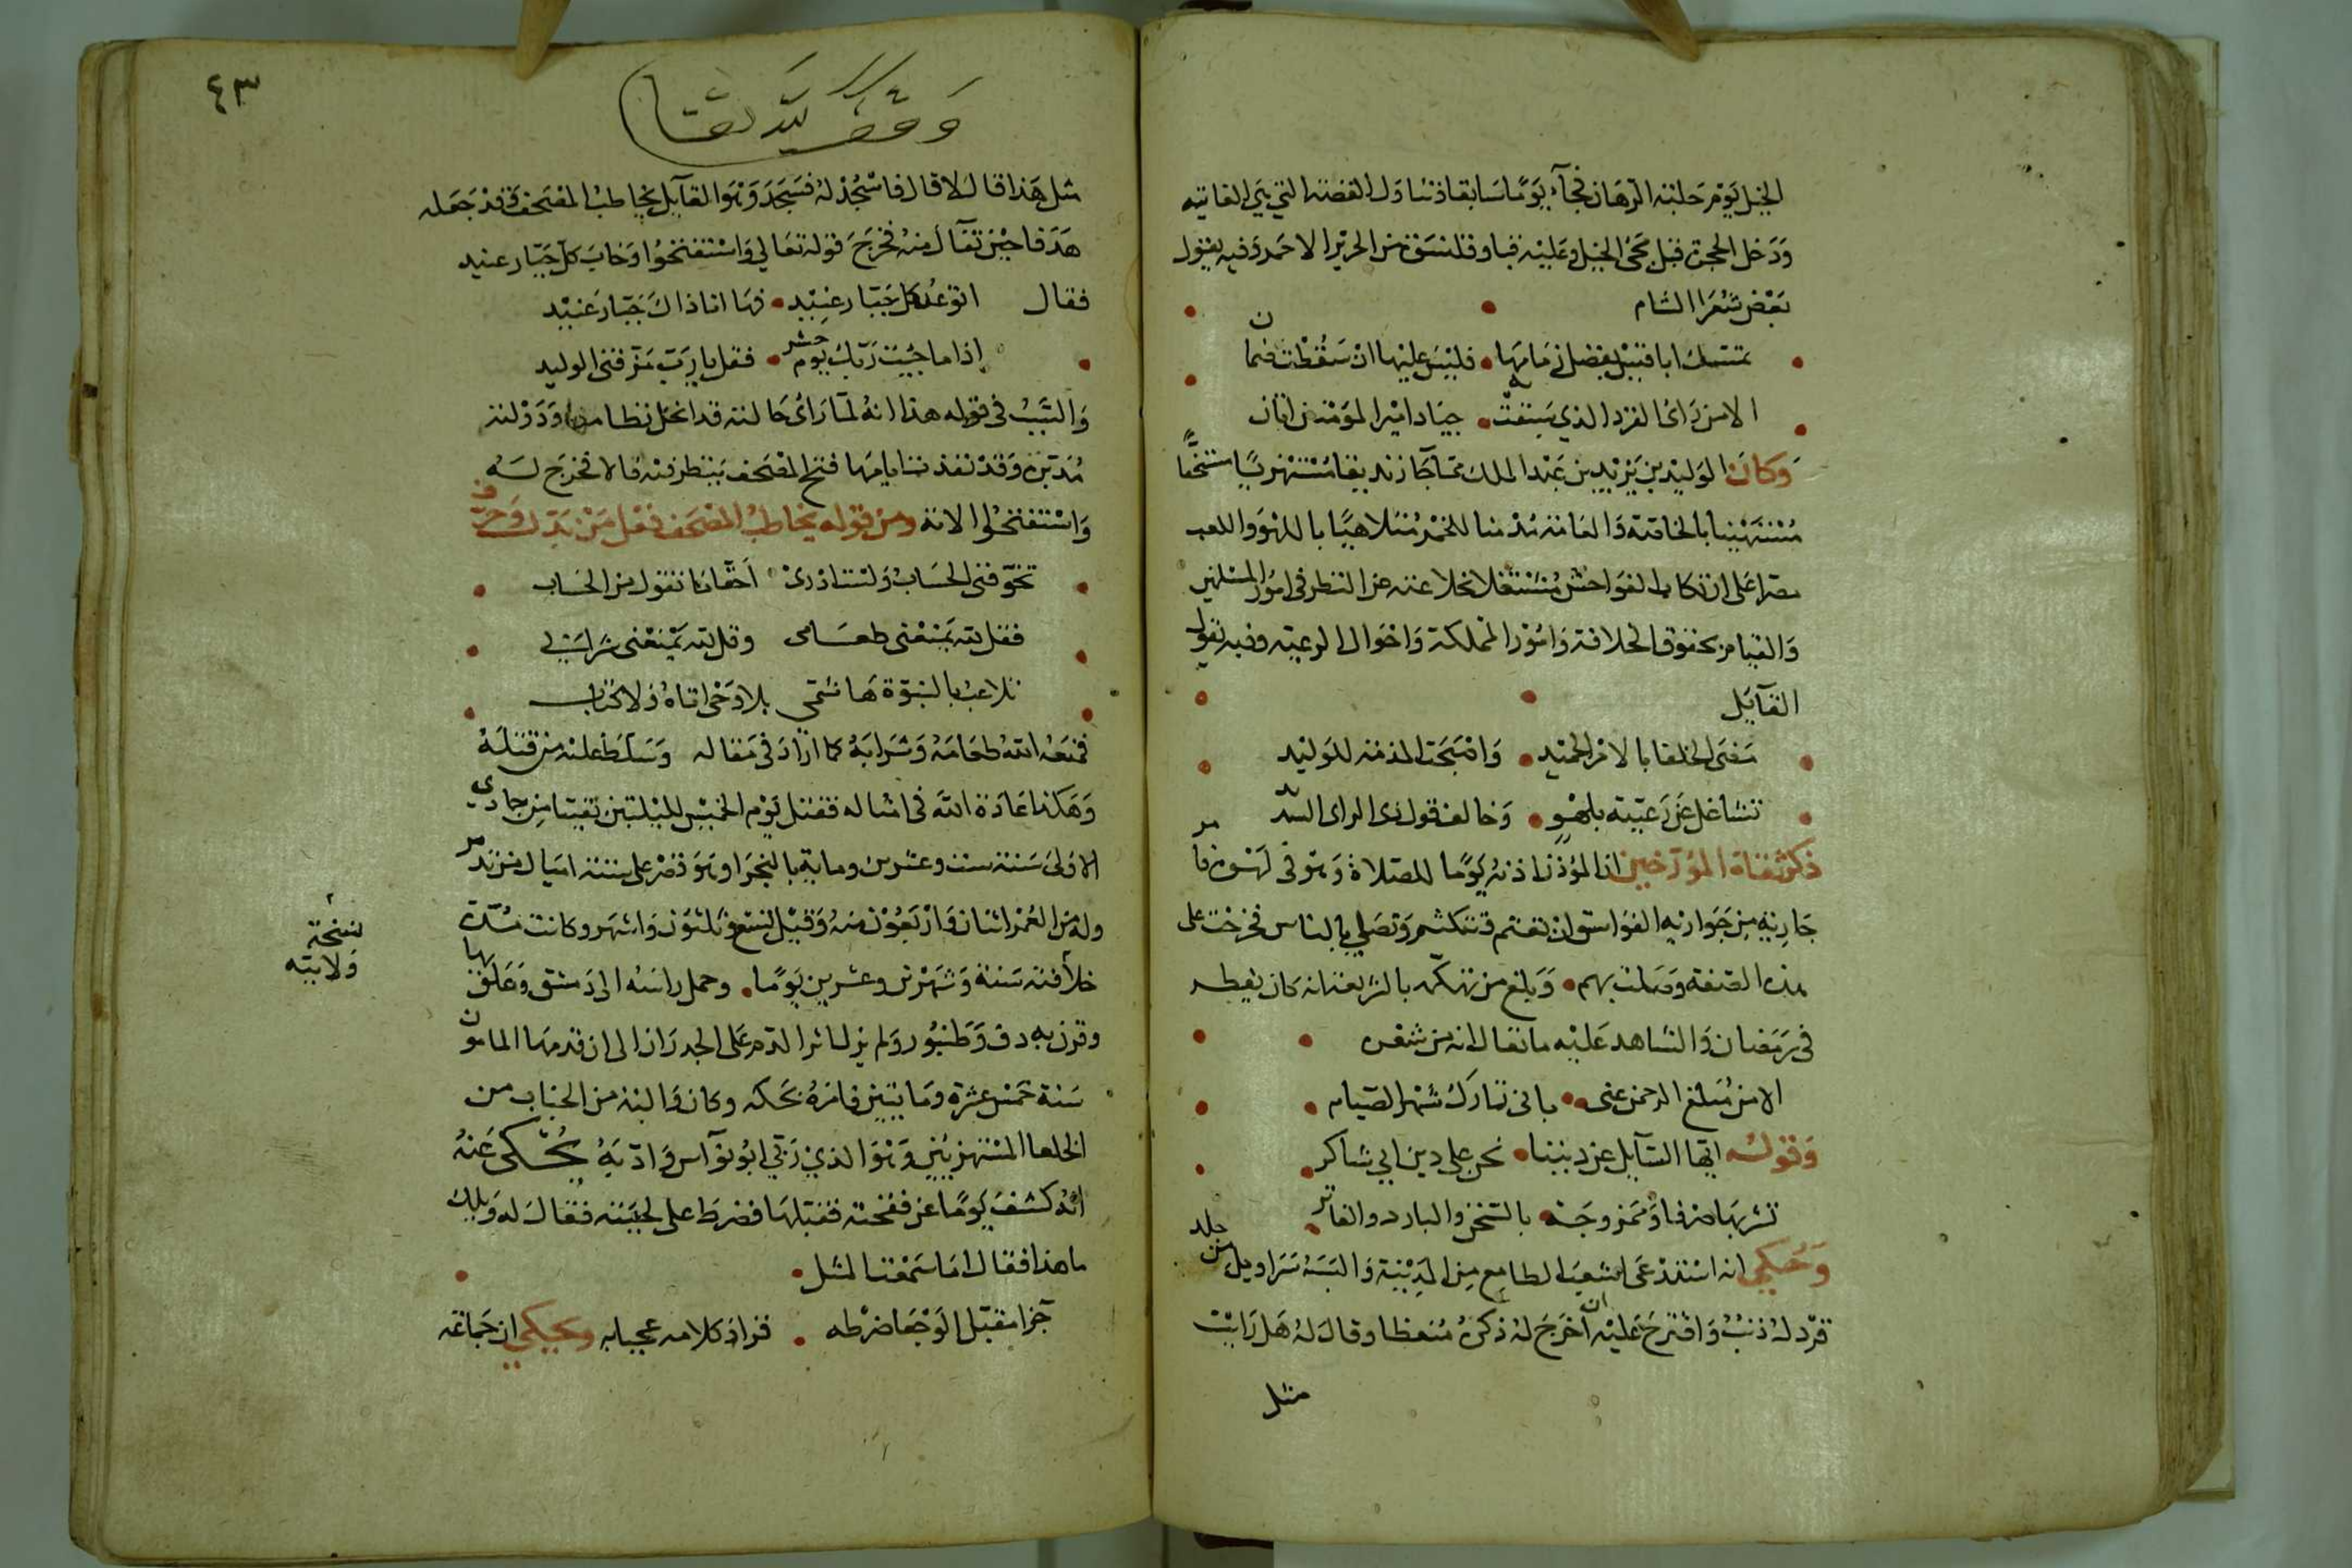 الخيل يوم حلبة الرهان فجآء يومًا سابقا فتناول القصبة التي هي الغاية
ودخل الحجرة قبل مجئ الخيل وعليه قبا وقلنسوة من الحرير الاحمر وفيه يقول
بعض شعرا الشام
تمسك ابا قيس بفضل زمامها فليس عليها ان سقطت ضمان
الا من رائ القرد الذي سبقت به جياد امير المؤمنين اتان
وكان الوليد بن يزيد بن عبد الملك زنديقا مستهزيًا مستخفًا
بالخاصة والعامة مدمنا للخمر متلاهيًا باللهو واللعب
مصرا على ارتكاب الفواحش مشتغلا بخلاعته عن النظر في امور المسلمين
والقيام بحقوق الخلافة وامور المملكة واحوال الرعية وفيه يقول
القآيل
مضى الخلفا بالامر الحميد واصبحت المذمة للوليد
تشاغل عن رعيته بلهو وخالف قول ذى الراى السديد
ذكر ثقاة المؤرخين ان المؤذن اذنه يومًا للصلاة وهو في لهوه فامر
جارية من جواريه الفواسق ان تعتم وتتلثم وتصلي بالناس فخرجت على
هذه الصفة وصلت بهم وبلغ من تهكمه بالشريعة انه كان يفطر
في رمضان والشاهد عليه ما نقل انه من شعره
الا من مبلغ الرحمن عنى بانى تارك شهر الصيام
وقوله ايها السآيل عن ديننا نحن على دين ابي شاكر
نشربها صرفا وممزوجة بالسخن والبارد والفاتر
وحكي انه استدعى اشعب الطامع من المدينة والبسه سراويل من جلد
قرد له ذنب واقترح عليه ان اخرج له ذكره منعظا وقال له هل رايت
مثل
٤٣
وقف لله تعا
مثل هذا قال لا قال فاسجد له فسجد وهو القآيل يخاطب المصحف وقد جعله
هدفا حين تفآل منه فخرج قوله تعالي واستفتحوا وخاب كل جبار عنيد
فقال اتوعد كل جبار عنيد فها انا ذاك جبار عنيد
اذا ما جيت ربك يوم حشر فقل يا رب مزقني الوليد
والسبب في قوله هذا انه لمآ رائ حالته قد انحل نظامها ودولته
مدبرة وقد نفذت ايامها فتح المصحف ينظر فيه فالا فخرج له
واستفتحوا الاية ومن قوله يخاطب المصحف
تخوفني الحساب ولست ادرى احقا ما تقول من الحساب
فقل لله يمنعنى طعامى وقل لله يمنعنى شرابي
تلاعب بالنبوة هاشمي بلا وحي اتاه ولا كتاب
فمنعه الله طعامه وشرابه كما اراد في مقاله وسلط عليه من قتله
وهكذا عادة الله في امثاله فقتل يوم الخميس لليلتين بقيتا من جمادى
الاولى سنة ست وعشرين وماية بالبخرا وهو قصر على ستة اميال من تدمر
وله من العمر اثنان واربعون سنه وقيل تسع وثلثون واشهر وكانت مدة
خلافته سنة وشهرين وعشرين يومًا وحمل راسه الى دمشق وعلق بها
وقرن به دف وطنبور ولم يزل اثر الدم على الجدران الى ان قدمها المامون
سنة خمس عشرة ومايتين فامر بحكه وكان والبة من الحباب من
الخلعا المستهزيين وهو الذي ربي ابو نوآس وادبه يحكى عنه
انه كشف يومًا عن فقحته فقبلها فضرط على لحيته فقال له ويلك
ما هذا فقال اما سمعت المثل
جزا مقبل الوجعا ضرطه فزاد كلامه عجبا به ويحكي ان جماعة
نسخة
ولايته